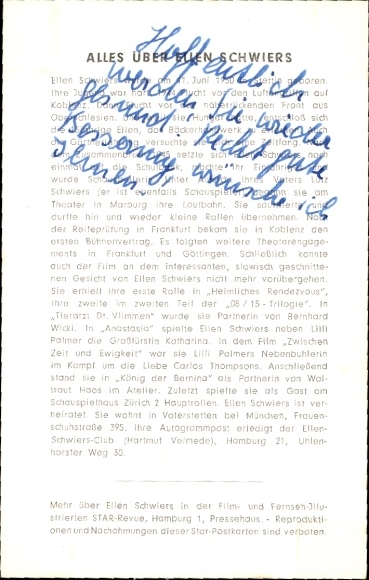 ALLES ÜBER ELLEN SCHWIERS
Hoffentlich
werden Sie wieder
gesund! Recht gute
Besserung wünsche ich
Ihnen
Ellen Schwiers wurde am 11. Juni 1930 in Stettin geboren.
Ihre Jugend war
Flucht vor den Luft
Koblenz.
vor der näherrückenden Front aus
Oberschlesien.
Hunger
entschloß sich
die
jährige Ellen, das Bäckerhandwerk zu
Gärtner
versuchte
lang.
Zusammen
setzte sich
nach
einmal
Schulbank, machte ihr Einjähriges
wurde Schau
ihres Vaters
Schwiers (er ist ebenfalls Schauspieler) begann sie am
Theater in Marburg ihre Laufbahn. Sie soufflierte und
durfte hin und wieder kleine Rollen übernehmen. Nach
der Reifeprüfung in Frankfurt bekam sie in Koblenz den
ersten Bühnenvertrag. Es folgten weitere Theaterengage-
ments in Frankfurt und Göttingen. Schließlich konnte
auch der Film an dem interessanten, slawisch geschnitte-
nen Gesicht von Ellen Schwiers nicht mehr vorübergehen.
Sie erhielt ihre erste Rolle in „Heimliches Rendezvous",
ihre zweite im zweiten Teil der „08/15-Trilogie". In
„Tierarzt Dr. Vlimmen" wurde sie Partnerin von Bernhard
Wicki. In „Anastasia" spielte Ellen Schwiers neben Lilli
Palmer die Großfürstin Katharina. In dem Film „Zwischen
Zeit und Ewigkeit" war sie Lilli Palmers Nebenbuhlerin
im Kampf um die Liebe Carlos Thompsons. Anschließend
stand sie in „König der Bernina" als Partnerin von Wal-
traut Haas im Atelier. Zuletzt spielte sie als Gast am
Schauspielhaus Zürich 2 Hauptrollen. Ellen Schwiers ist ver-
heiratet. Sie wohnt in Vaterstetten bei München, Frauen-
schuhstraße 395. Ihre Autogrammpost erledigt der Ellen-
Schwiers-Club (Hartmut Velmede), Hamburg 21, Uhlen-
horster Weg 30.
Mehr über Ellen Schwiers in der Film- und Fernseh-Illu-
strierten STAR-Revue, Hamburg 1, Pressehaus. - Reprodukti-
onen und Nachahmungen dieser Star-Postkarten sind verboten.